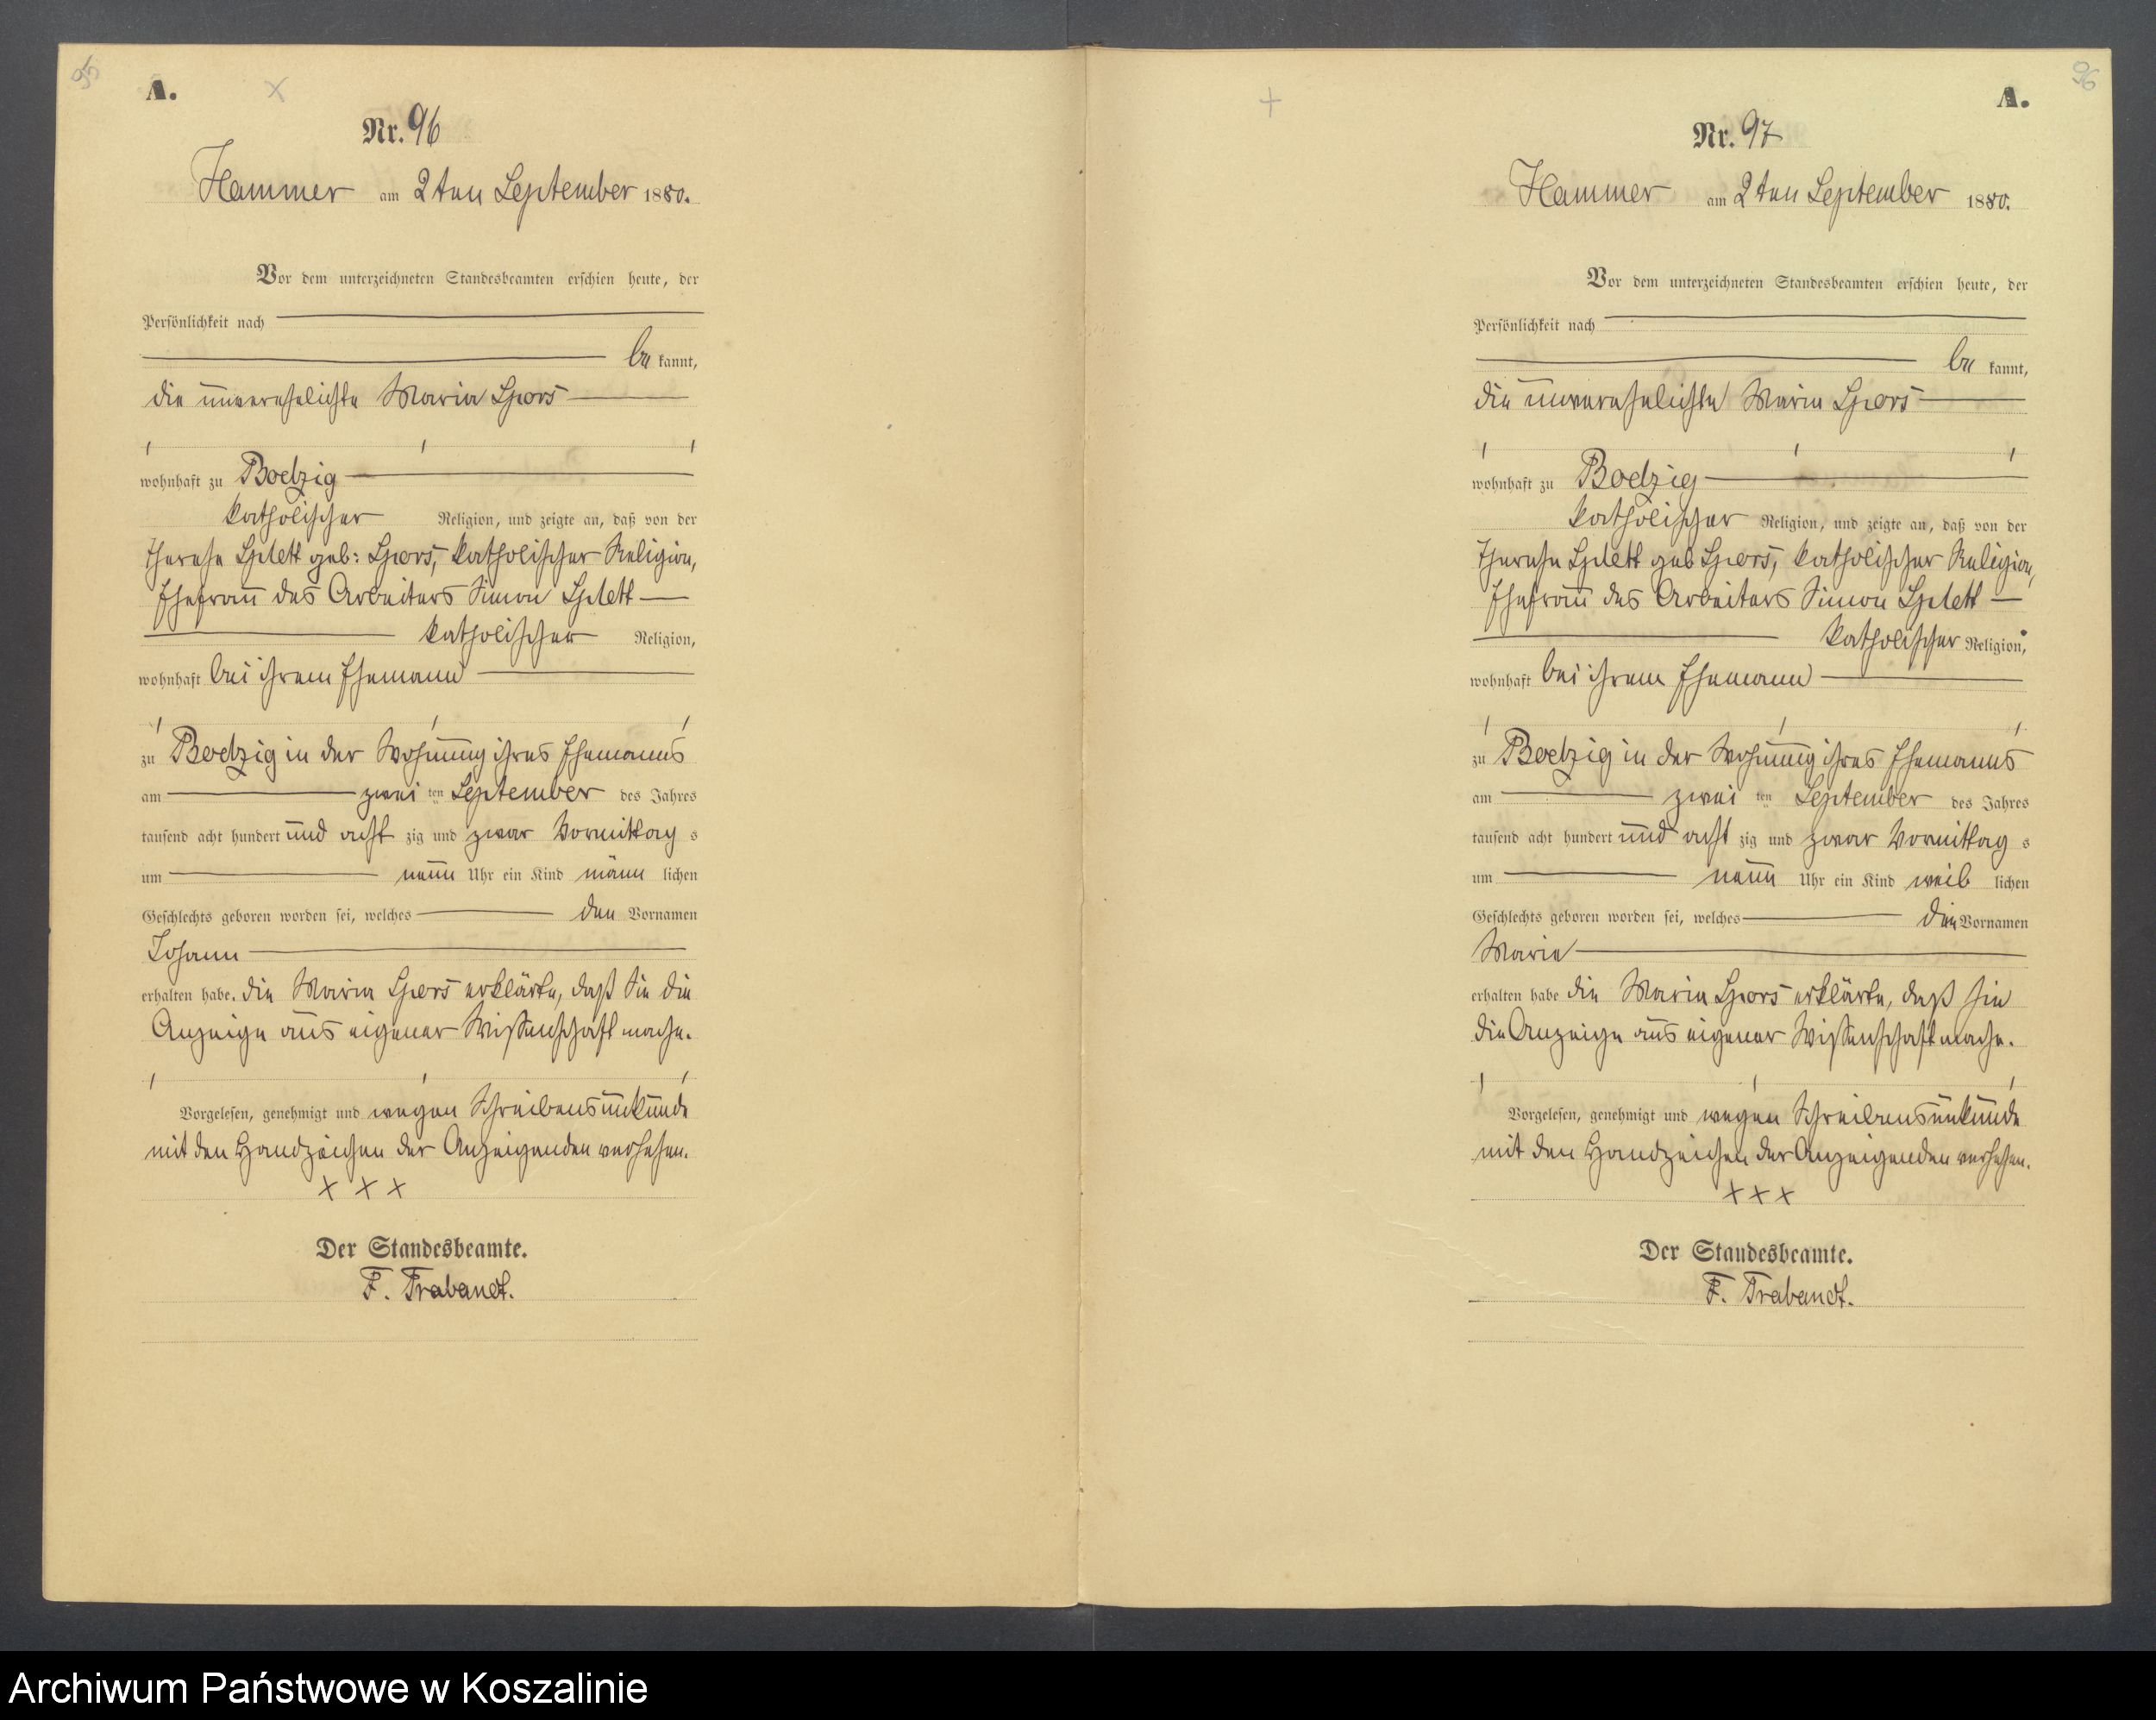 95
A.
Nr. 96
Hammer am 2ten September 1880.
Vor dem unterzeichneten Standesbeamten erschien heute, der
Persönlichkeit nach
be kannt,
die unverehelichte Maria Spors
wohnhaft zu Boetzig
katholischer Religion, und zeigte an, daß von der
Therese Splett geb: Spors, katholischer Religion,
Ehefrau des Arbeiters Simon Splett
katholischer Religion,
wohnhaft bei ihrem Ehemann
zu Boetzig in der Wohnung ihres Ehemanns
am zwei ten September des Jahres
tausend acht hundert und acht zig und zwar Vormittag s
um neun Uhr ein Kind männ lichen
Geschlechts geboren worden sei, welches den Vornamen
Johann
erhalten habe. die Maria Spors erklärte, daß sie die
Anzeige aus eigener Wissenschaft mache.
Vorgelesen, genehmigt und wegen Schreibensunkunde
mit den Handzeichen der Anzeigenden versehen.
x x x
Der Standesbeamte.
F. Trabandt.
96
A.
Nr. 97
Hammer am 2ten September 1880.
Vor dem unterzeichneten Standesbeamten erschien heute, der
Persönlichkeit nach
be kannt,
die unverehelichte Maria Spors
wohnhaft zu Boetzig
katholischer Religion, und zeigte an, daß von der
Therese Splett geb Spors, katholischer Religion,
Ehefrau des Arbeiters Simon Splett
katholischer Religion,
wohnhaft bei ihrem Ehemann
zu Boetzig in der Wohnung ihres Ehemanns
am zwei ten September des Jahres
tausend acht hundert und acht zig und zwar Vormittag s
um neun Uhr ein Kind weib lichen
Geschlechts geboren worden sei, welches den Vornamen
Marie
erhalten habe die Maria Spors erklärte, daß sie
die Anzeige aus eigener Wissenschaft mache.
Vorgelesen, genehmigt und wegen Schreibensunkunde
mit den Handzeichen der Anzeigenden versehen.
x x x
Der Standesbeamte.
F. Trabandt.
Archiwum Państwowe w Koszalinie